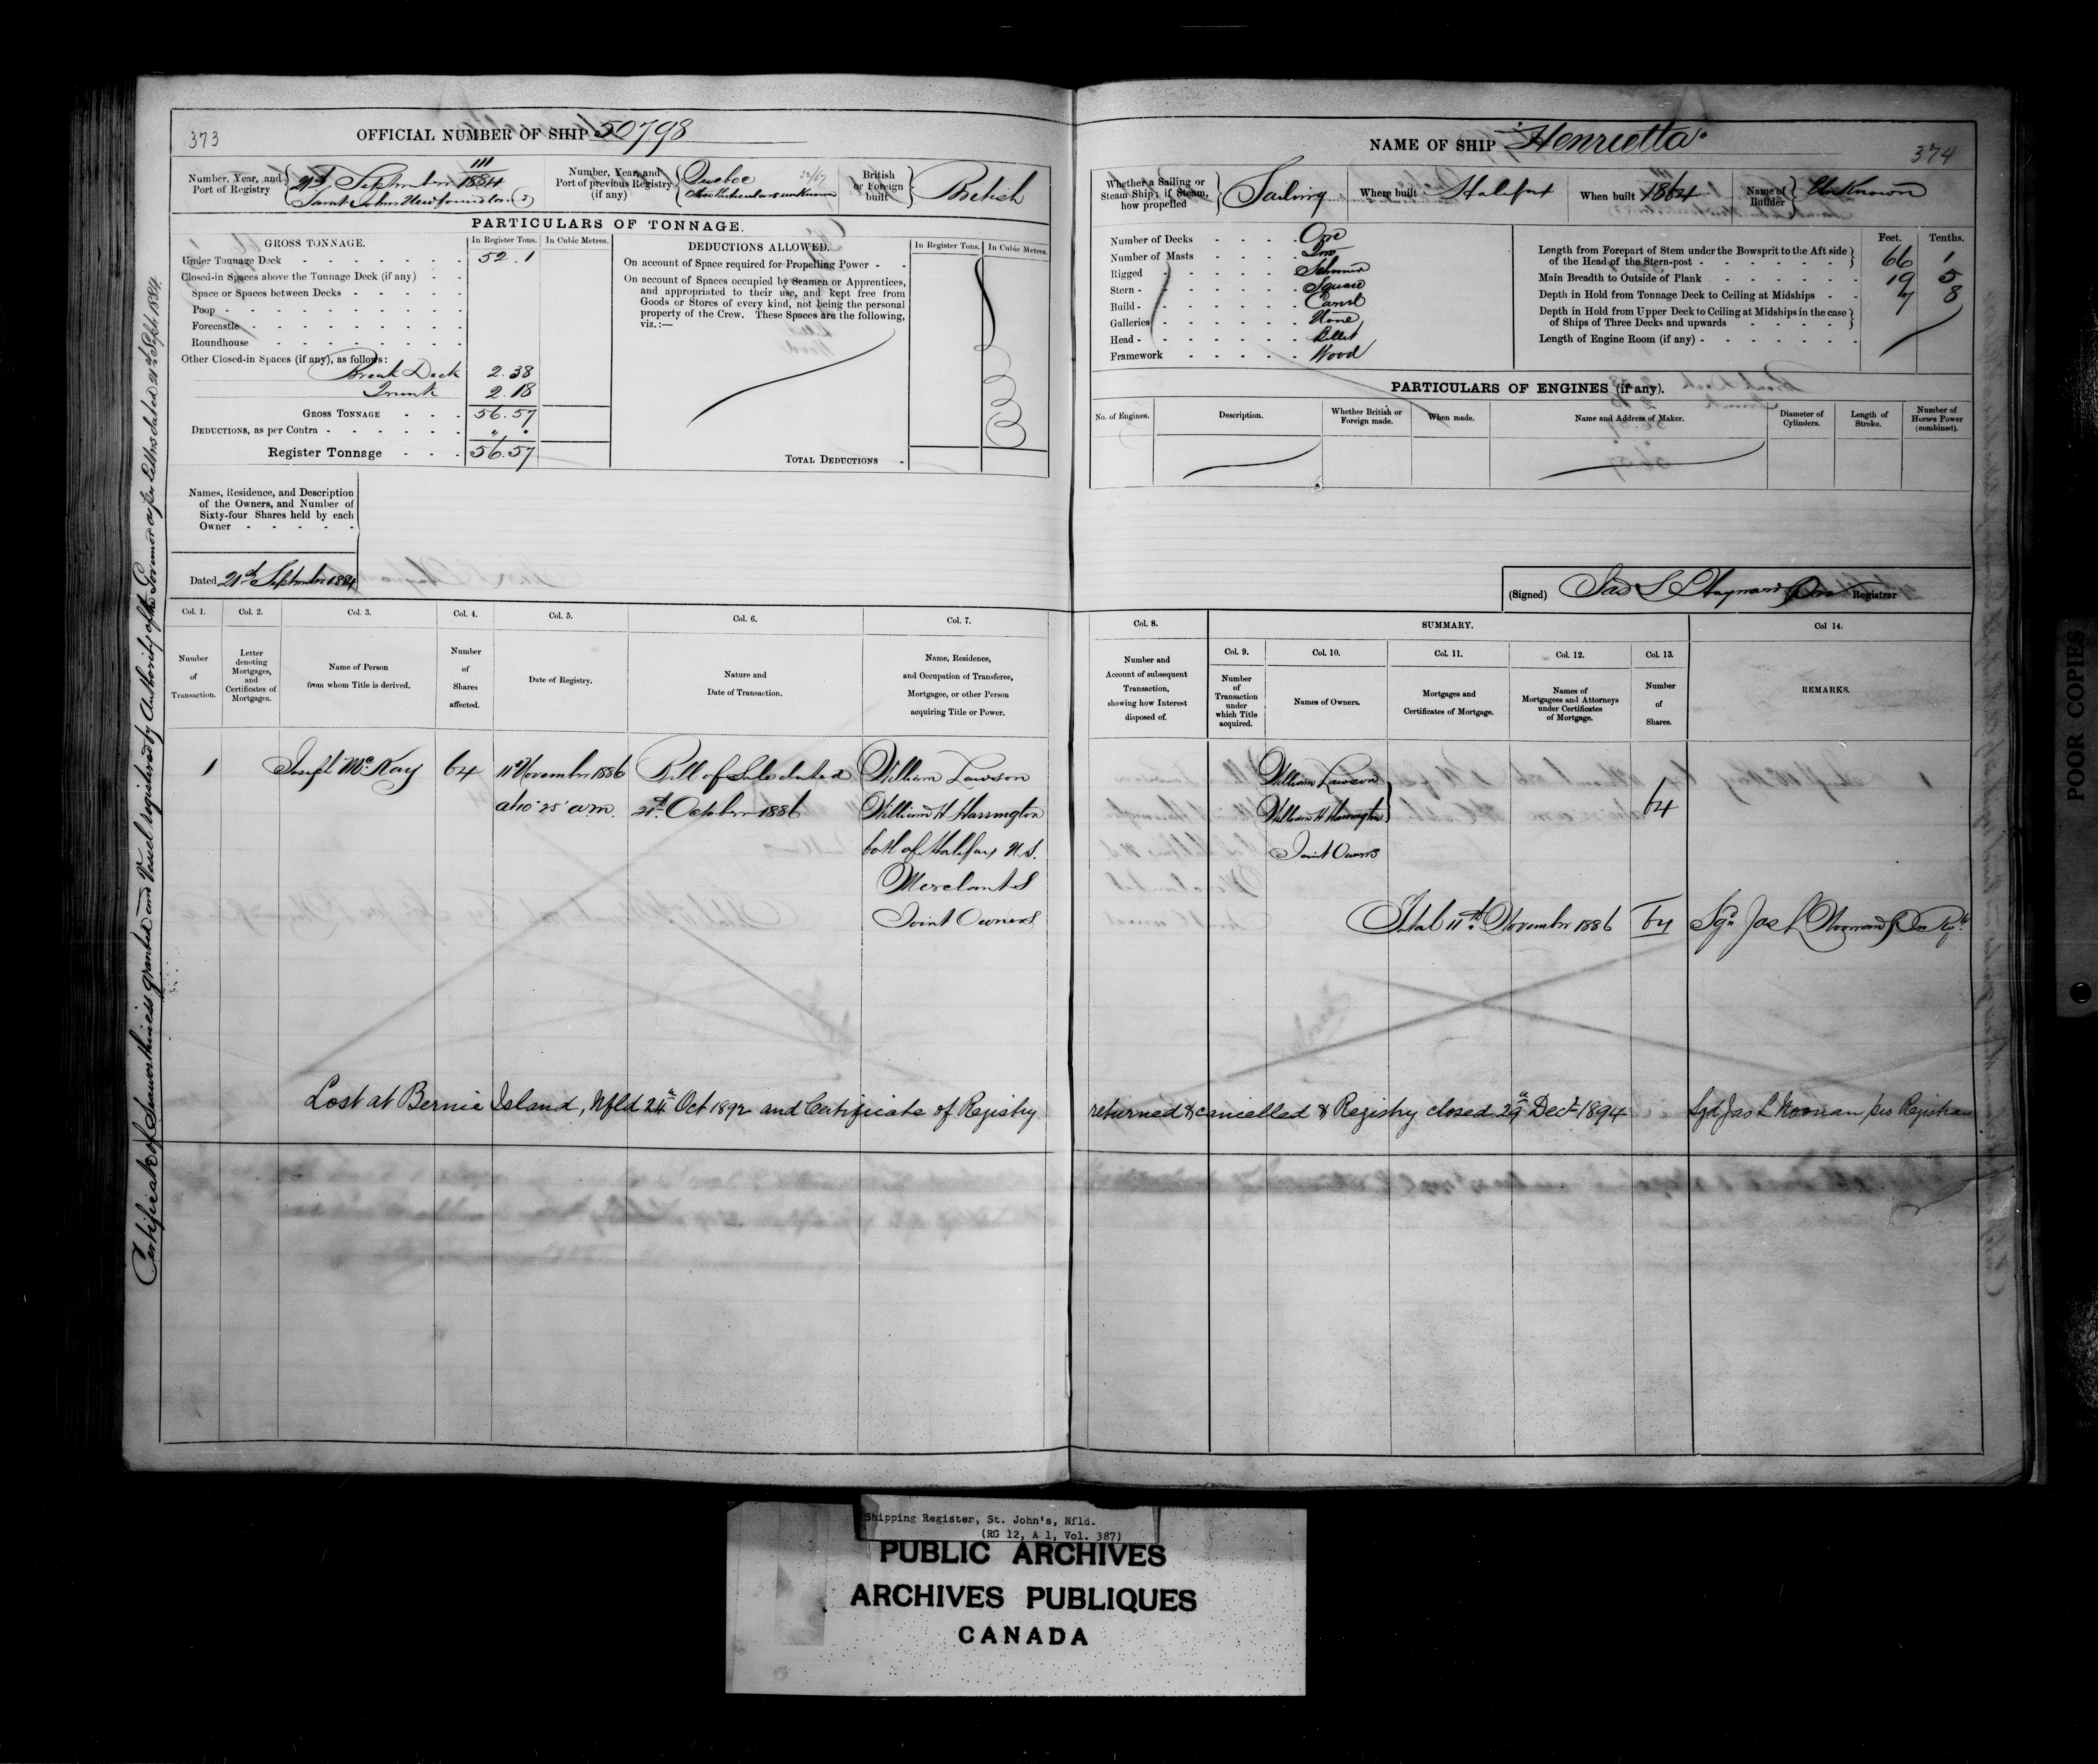 373
OFFICIAL NUMBER OF SHIP 50798
Number, Year, and Port of Registry
21st September 1884
Saint Johns Newfoundland
Number, Year, and Port of previous Registry (if any)
Quebec 32/67
British or Foreign built
British
PARTICULARS OF TONNAGE.
GROSS TONNAGE.
In Register Tons.
In Cubic Metres.
Under Tonnage Deck 52.1
Closed-in Spaces above the Tonnage Deck (if any)
Space or Spaces between Decks
Poop
Forecastle
Roundhouse
Other Closed-in Spaces (if any), as follows:
Break Deck 2.38
Trunk 2.18
GROSS TONNAGE 56.57
DEDUCTIONS, as per Contra
Register Tonnage 56.57
DEDUCTIONS ALLOWED.
In Register Tons.
In Cubic Metres.
On account of Space required for Propelling Power
On account of Spaces occupied by Seamen or Apprentices,
and appropriated to their use, and kept free from
Goods or Stores of every kind, not being the personal
property of the Crew. These Spaces are the following,
viz.:—
TOTAL DEDUCTIONS
Names, Residence, and Description
of the Owners, and Number of
Sixty-four Shares held by each
Owner
Dated 21st September 1884
Col. 1. Col. 2. Col. 3. Col. 4. Col. 5. Col. 6. Col. 7.
Number of Transaction.
Letter denoting Mortgages, and Certificates of Mortgages.
Name of Person from whom Title is derived.
Number of Shares affected.
Date of Registry.
Nature and Date of Transaction.
Name, Residence, and Occupation of Transferee, Mortgagee, or other Person acquiring Title or Power.
1 Joseph McKay 64 11th November 1886 Bill of Sale dated William Lawson
at 10.25 a.m. 21st October 1886 William H Harrington
both of Halifax N.S.
Merchants
Joint Owners
Certificate of Seaworthiness granted and Vessel registered by Authority of the Governor as per Letters dated 21st Sept 1884.
374
NAME OF SHIP "Henrietta"
Whether a Sailing or Steam Ship; if Steam, how propelled
Sailing
Where built Halifax
When built 1864
Name of Builder
Unknown
Number of Decks One
Number of Masts Two
Rigged Schooner
Stern Square
Build Carvel
Galleries None
Head Billet
Framework Wood
Feet. Tenths.
Length from Forepart of Stem under the Bowsprit to the Aft side
of the Head of the Stern-post 66 1
Main Breadth to Outside of Plank 19 5
Depth in Hold from Tonnage Deck to Ceiling at Midships 7 8
Depth in Hold from Upper Deck to Ceiling at Midships in the case
of Ships of Three Decks and upwards
Length of Engine Room (if any)
PARTICULARS OF ENGINES (if any).
No. of Engines.
Description.
Whether British or Foreign made.
When made.
Name and Address of Maker.
Diameter of Cylinders.
Length of Stroke.
Number of Horses Power (combined).
(Signed) Registrar
Col. 8. SUMMARY. Col 14.
Col. 9. Col. 10. Col. 11. Col. 12. Col. 13.
Number and Account of subsequent Transaction, showing how Interest disposed of.
Number of Transaction under which Title acquired.
Names of Owners.
Mortgages and Certificates of Mortgage.
Names of Mortgagees and Attorneys under Certificates of Mortgage.
Number of Shares.
REMARKS.
William Lawson
William H Harrington 64
Joint Owners
Total 11th November 1886 64
Lost at Bernie Island, Nfld 24th Oct 1892 and Certificate of Registry returned & cancelled & Registry closed 29th Decr 1894 Sgd Jas L Noonan pro Registrar
POOR COPIES
Shipping Register, St. John's, Nfld.
(RG 12, A 1, Vol. 387)
PUBLIC ARCHIVES
ARCHIVES PUBLIQUES
CANADA